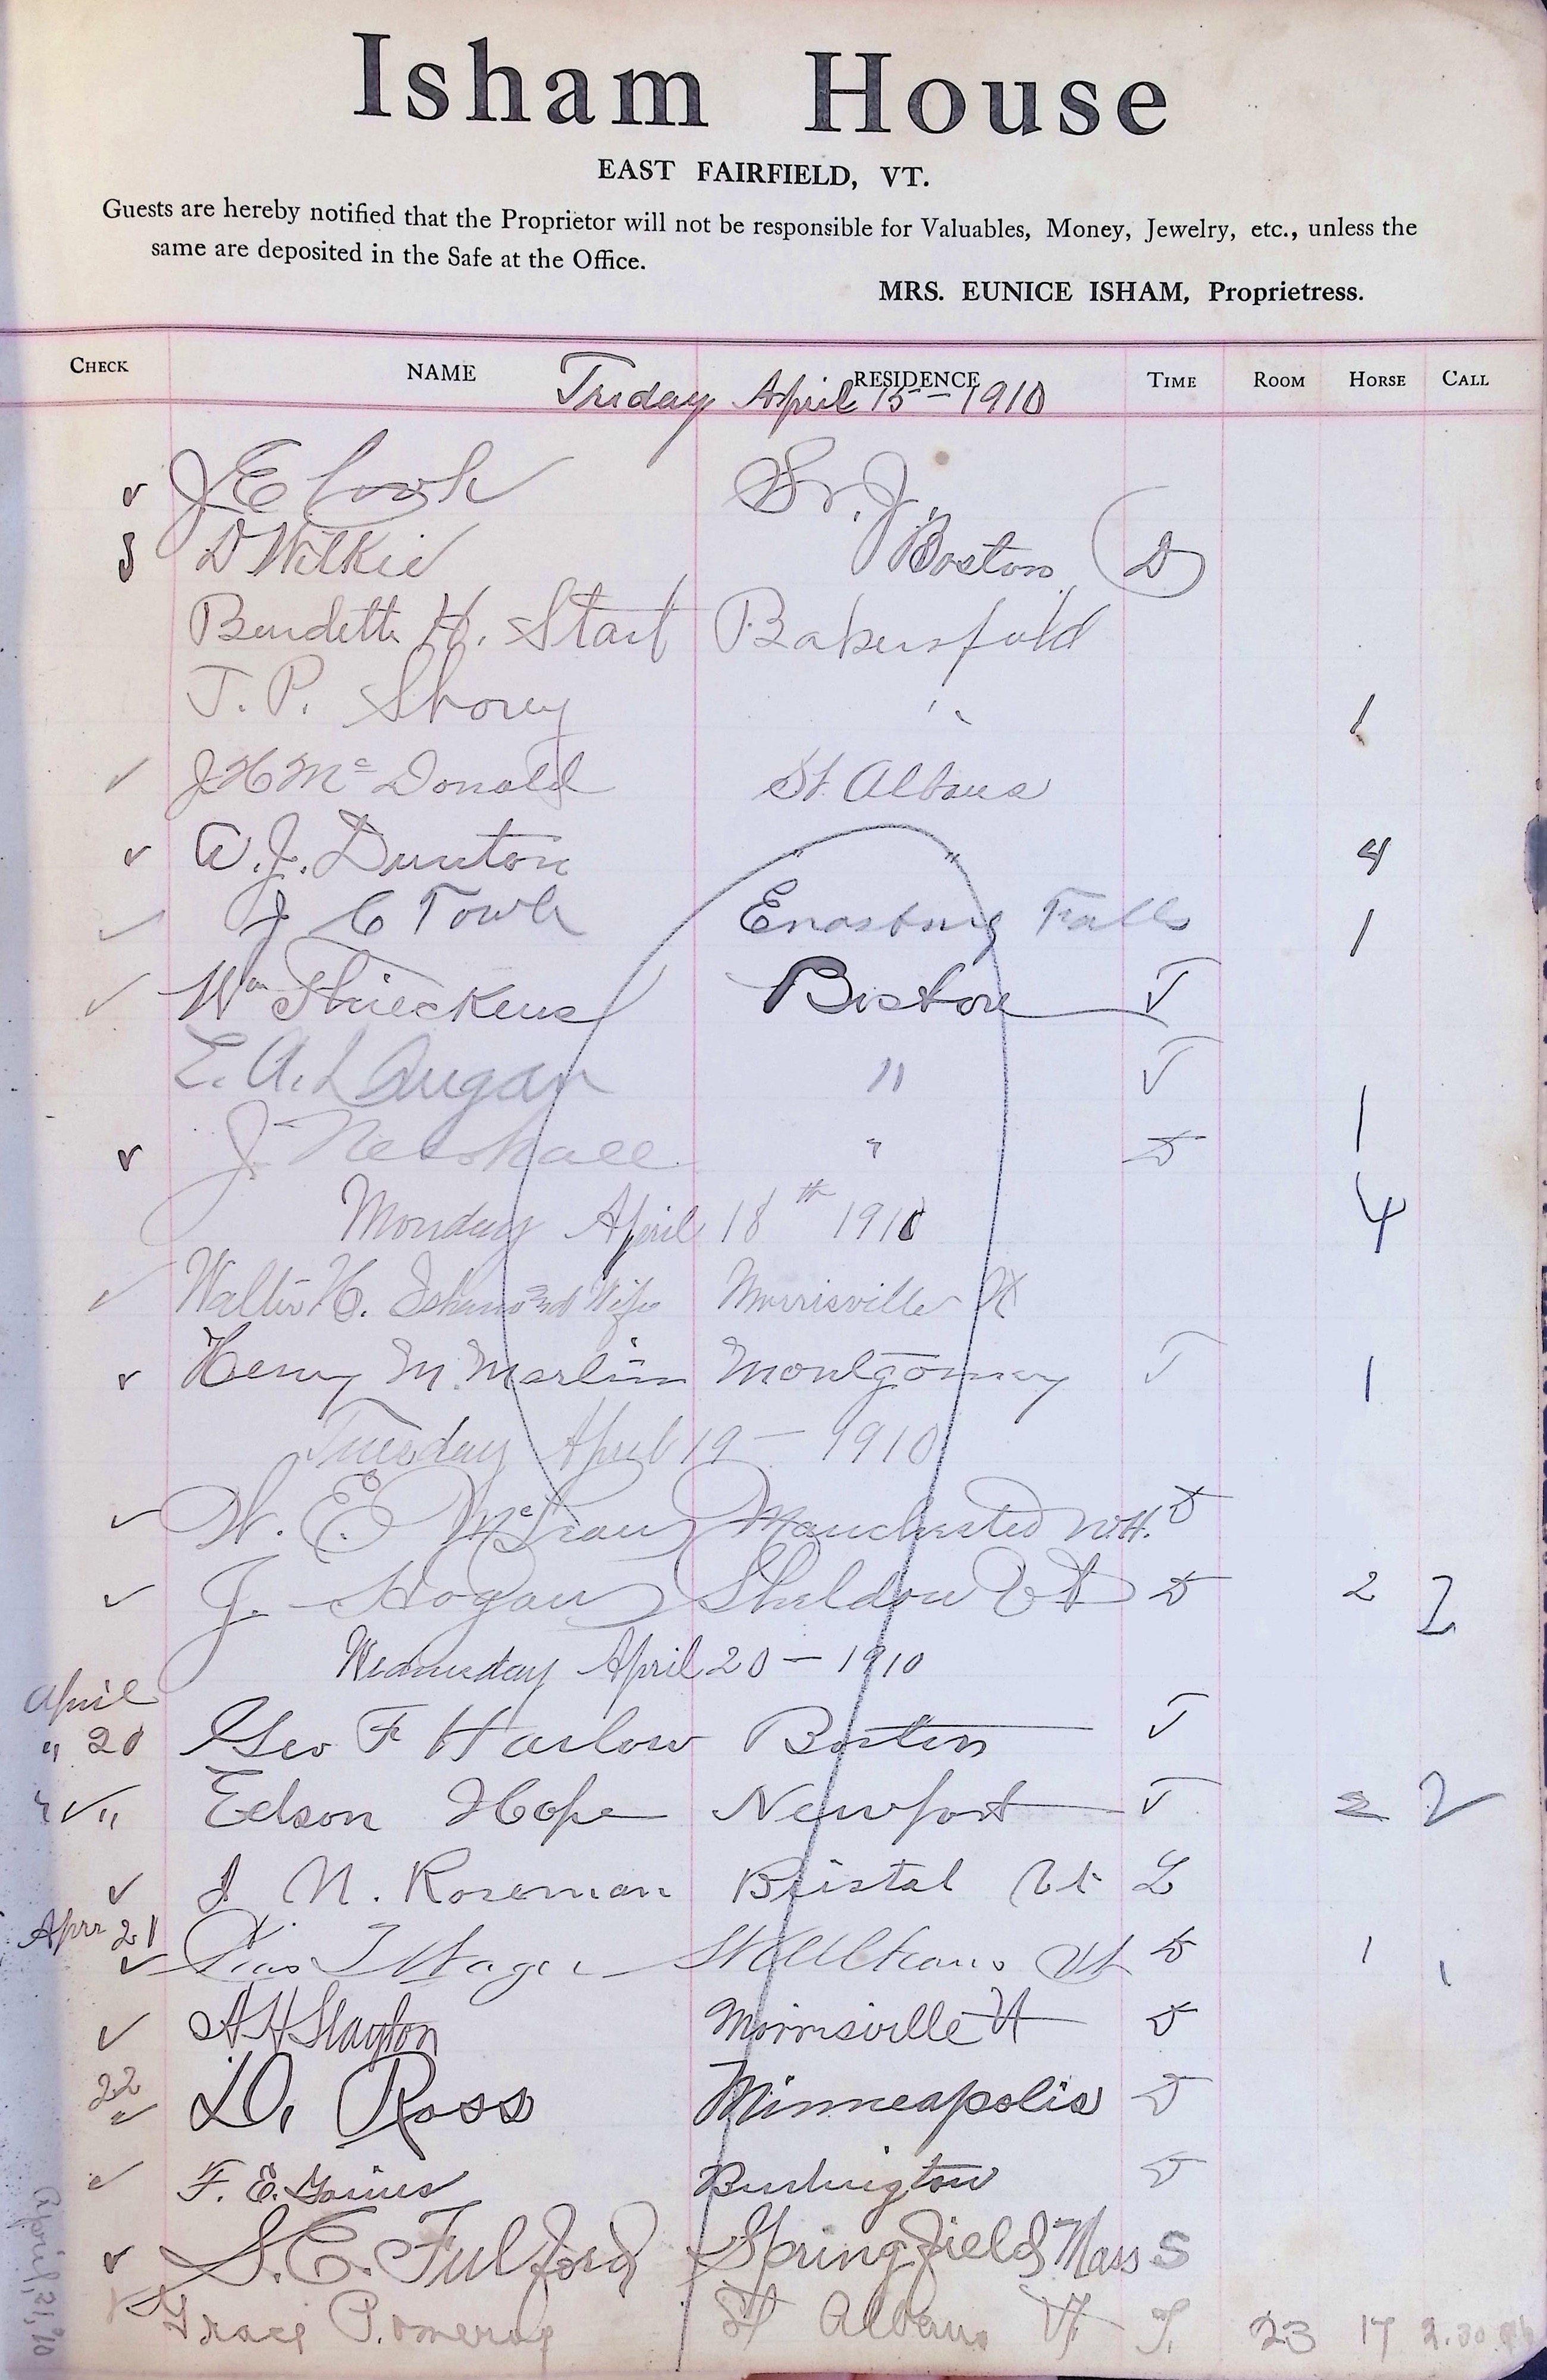 Isham House
EAST FAIRFIELD, VT.
Guests are hereby notified that the Proprietor will not be responsible for Valuables, Money, Jewelry, etc., unless the
same are deposited in the Safe at the Office.
MRS. EUNICE ISHAM, Proprietress.
CHECK NAME RESIDENCE TIME ROOM HORSE CALL
Friday April 15 - 1910
J E Cook St. J.
D Wilkie Boston D
Burdett H. Start Bakersfield
T. P. Shorey " 1
J H Mc Donald St. Albans
W. J. Dunton " " 4
J C Towle Enosburg Falls 1
Wm Boston
E. A. Laugan "
J. "  1
Monday April 18th 1910 4
Walter H. Isham and Wife Morrisville Vt
Henry M. Martin Montgomery 1
Tuesday April 19 - 1910
W. E. Manchester N.H.
J. Hogan Sheldon Vt 2 2
Wednesday April 20 - 1910
April
" 20 Geo F Harlow Boston
" " Edson Hope Newport 2 2
J N. Roseman Bristol Vt
Apr 21 St Albans Vt 1 1
A H Slayton Morrisville Vt
22 D. Ross Minneapolis
F. E. Burlington
S. C. Fulford Springfield Mass S
Grace Pomeroy St Albans Vt T. 23 17 2.30
April, 21, '10